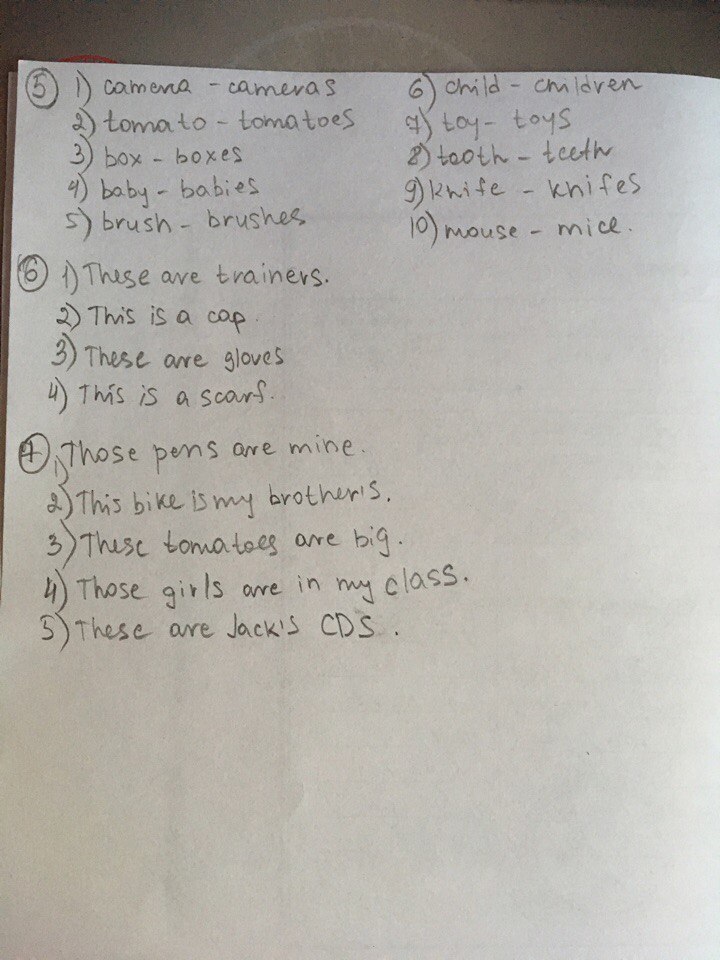 5 1) camera - cameras
2) tomato - tomatoes
3) box - boxes
4) baby - babies
5) brush - brushes
6) child - children
7) toy - toys
8) tooth - teeth
9) knife - knifes
10) mouse - mice.
6 1) These are trainers.
2) This is a cap.
3) These are gloves
4) This is a scarf.
7 1) Those pens are mine.
2) This bike is my brother's.
3) These tomatoes are big.
4) Those girls are in my class.
5) These are Jack's CDS.